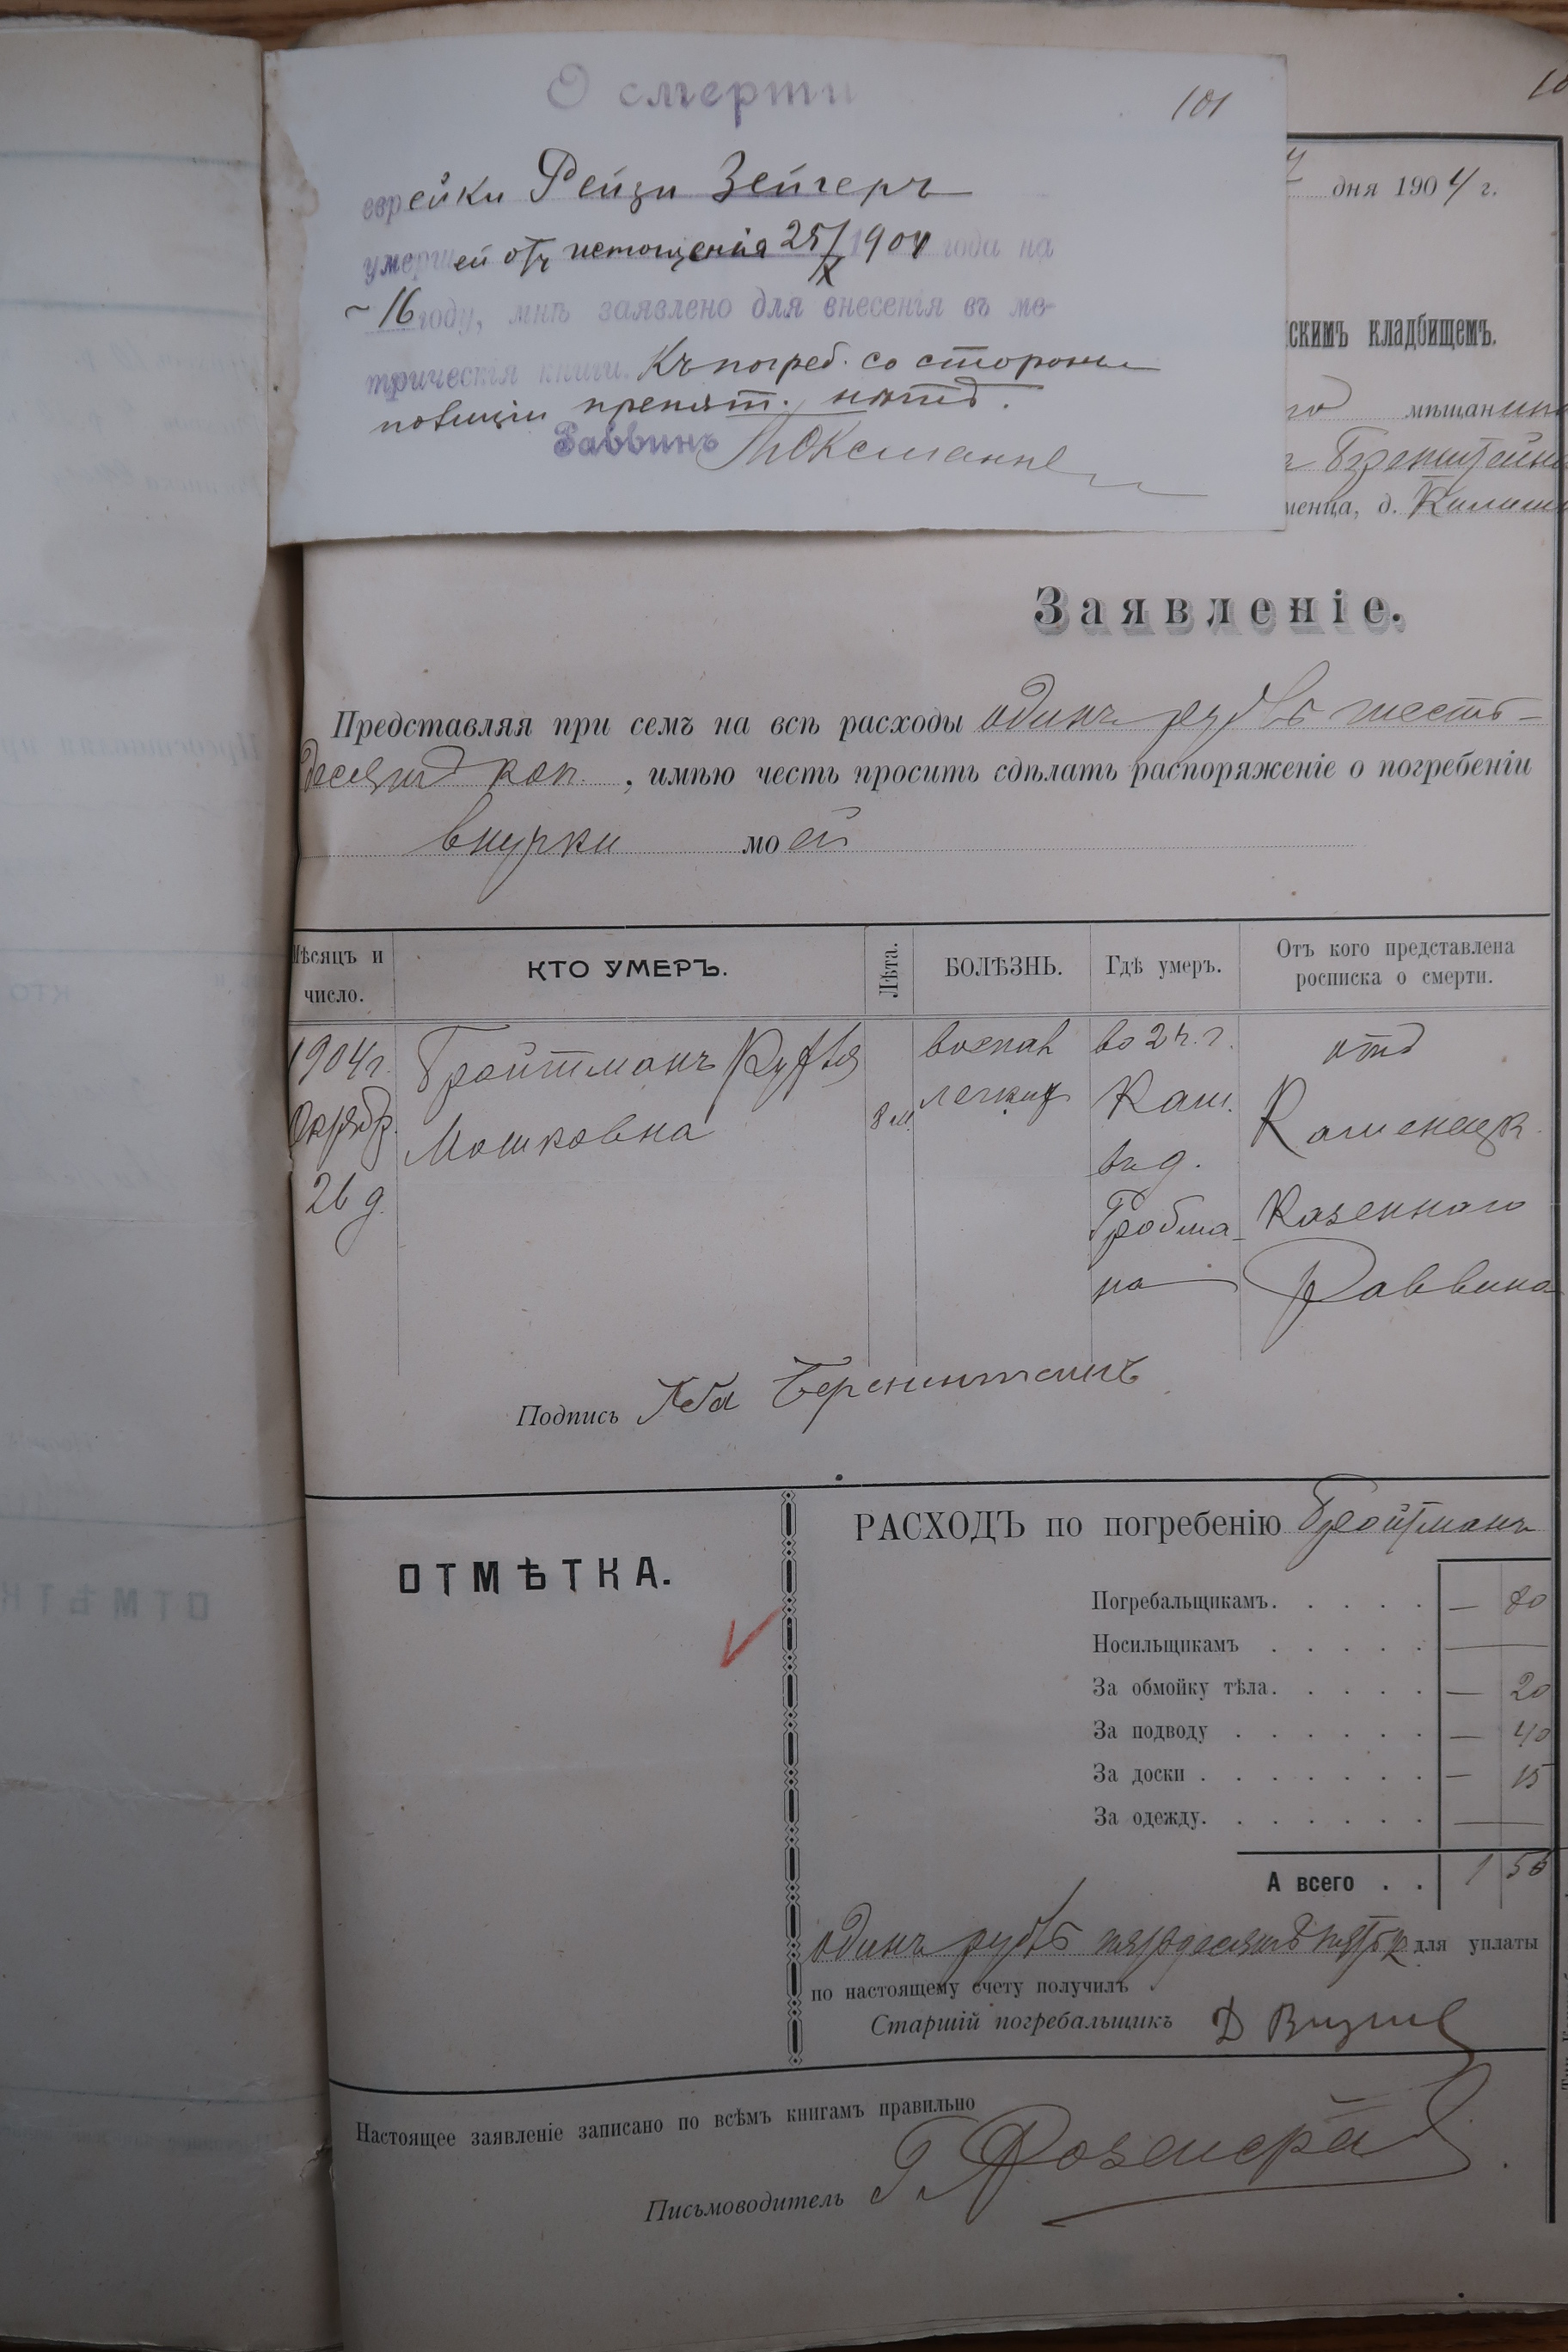 О смерти
101
еврейки Рейзи Зейгеръ
умершей отъ истощенія 25/X 1904 года на
16 году, мнѣ заявлено для внесенія въ ме-
трическія книги. Къ погреб. со стороны
полиціи препят. нѣтъ.
Раввинъ
дня 1904 г.
скимъ кладбищемъ.
мѣщанина
Беренштейна
менца, д.
Заявленіе.
Представляя при семъ на всѣ расходы одинъ рубль шесть-
десятъ коп. , имѣю честь просить сдѣлать распоряженіе о погребеніи
внучки моей
Мѣсяцъ и число.
КТО УМЕРЪ.
Лѣта.
БОЛѢЗНЬ.
Гдѣ умеръ.
Отъ кого представлена росписка о смерти.
1904 г.
Октябр.
26 д.
Гройтманъ Руфля
Мошковна
8 м.
воспал
легкихъ
во 2 ч. г.
Кам.
въ д.
Гробма-
на
отъ
Каменецк.
Казеннаго
Раввина
Подпись Аба Беренштейнъ
ОТМѢТКА.
РАСХОДЪ по погребенію Гройтманъ
Погребальщикамъ. . . . . — 80
Носильщикамъ . . . . . —
За обмойку тѣла. . . . . — 20
За подводу . . . . . . — 40
За доски . . . . . . . — 15
За одежду. . . . . . . —
А всего . . 1 55
одинъ рубль пятьдесятъ пять к для уплаты
по настоящему счету получилъ
Старшій погребальщикъ Д
Настоящее заявленіе записано по всѣмъ книгамъ правильно
Письмоводитель